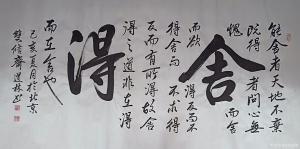 能舍者天地不棄
既得者问心無
愧
舍
而舍
而欲得反而不
得舍而不求得
反而有所得故舍
得之道非在得
得
而在舍也
己亥夏月于北京